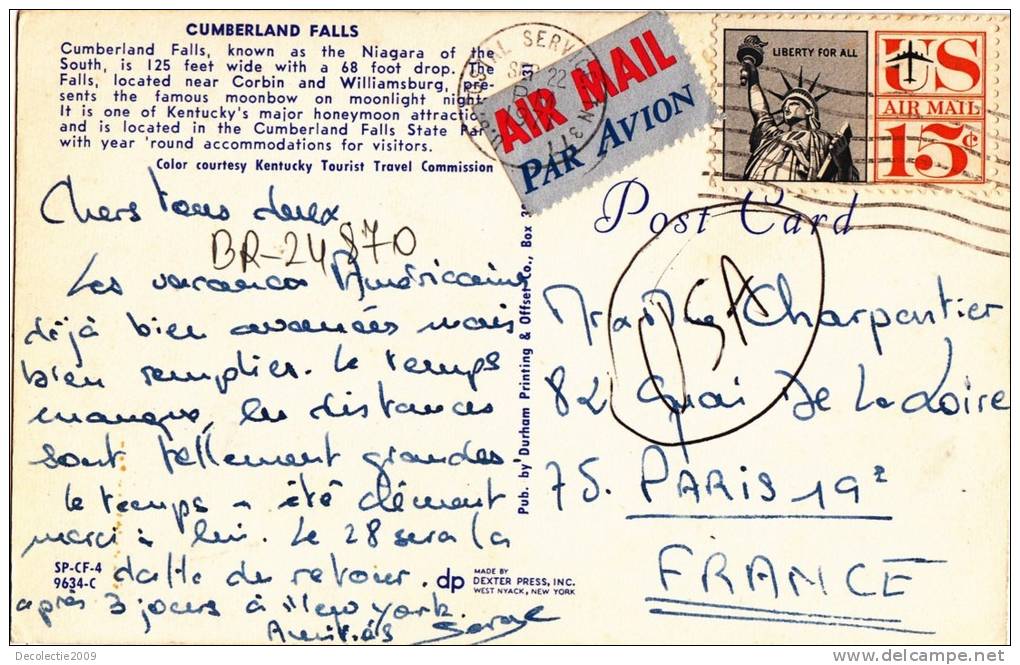 CUMBERLAND FALLS
Cumberland Falls, known as the Niagara of the
South, is 125 feet wide with a 68 foot drop. The
Falls, located near Corbin and Williamsburg, pre-
sents the famous moonbow on moonlight night
It is one of Kentucky's major honeymoon attractio
and is located in the Cumberland Falls State Par
with year 'round accommodations for visitors.
Color courtesy Kentucky Tourist Travel Commission
AIR MAIL
PAR AVION
LIBERTY FOR ALL
US
AIR MAIL
15c
Post Card
Chers tous deux
BR-24870
Les vacances Américaine
déjà bien avancées mais
bien remplies. Le temps
manque, les distances
sont tellement grandes
le temps a été clément
merci à lui. Le 28 sera la
datte de retour.
après 3 jours à New york.
Amitiés Serge
USA
Charpentier
82 Quai De La Loire
75. PARIS 19e
FRANCE
Pub. by Durham Printing & Offset Co., Box 3 31
SP-CF-4
9634-C
dp
MADE BY
DEXTER PRESS, INC.
WEST NYACK, NEW YORK
Decolectie2009
delcampe.net